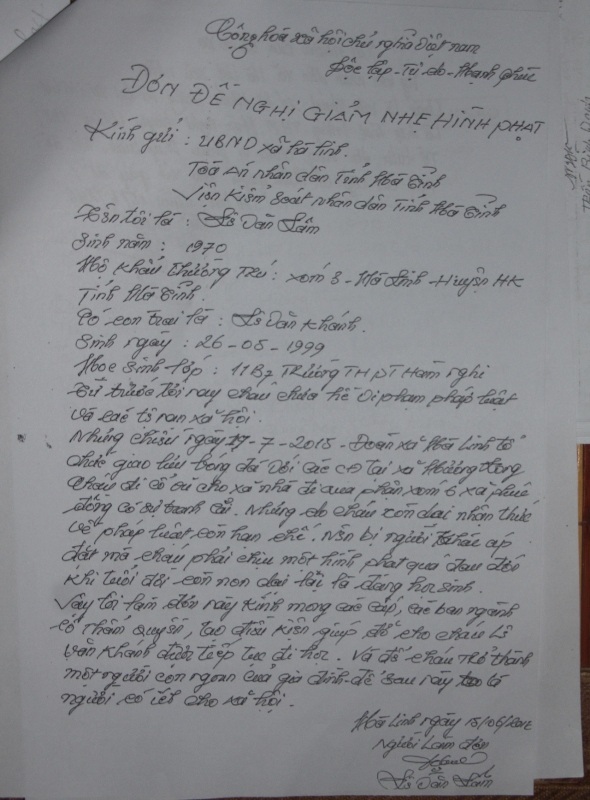 Cộng hoà xã hội chủ nghĩa Việt nam
Độc lập - Tự do - Hạnh phúc
ĐƠN ĐỀ NGHỊ GIẢM NHẸ HÌNH PHẠT
Kính gửi : UBND xã hà linh.
Toà án nhân dân Tỉnh Hà Tĩnh
Viện Kiểm soát nhân dân Tỉnh Hà Tĩnh
Tên tôi là : Lê Văn Lâm
Sinh năm : 1970
Hộ khẩu thường Trú : xóm 3 - Hà Linh - Huyện HK
Tỉnh Hà Tĩnh.
Có con trai là : Lê Văn Khánh.
Sinh ngày : 26-05-1999
Học Sinh lớp : 11B7 Trường TH PT Hàm nghi
Từ trước tới nay cháu chưa hề vi phạm pháp luật
và các tệ nạn xã hội.
Nhưng chiều ngày 19-7-2015 - Đoàn xã Hà Linh tổ
chức giao lưu bóng đá với các tại xã Hương
Cháu đi cổ vũ cho xã nhà đi qua phần xóm 6 xã phúc
đồng có sự tranh cãi. Nhưng do cháu còn dại nhận thức
về pháp luật còn hạn chế. Nên bị người khác áp
đặt mà cháu phải chịu một hình phạt quá đau đớn
khi tuổi đời còn non dại lại là đang học sinh.
Vậy tôi làm đơn này kính mong các cấp, các ban ngành
có thẩm quyền, tạo điều kiện giúp đỡ cho cháu Lê
văn Khánh được tiếp tục đi học. Và để cháu trở thành
một người con ngoan của gia đình - để sau này là
người có ích cho xã hội.
Hà Linh ngày 15/06/
Người Làm đơn
Lê Văn Lâm